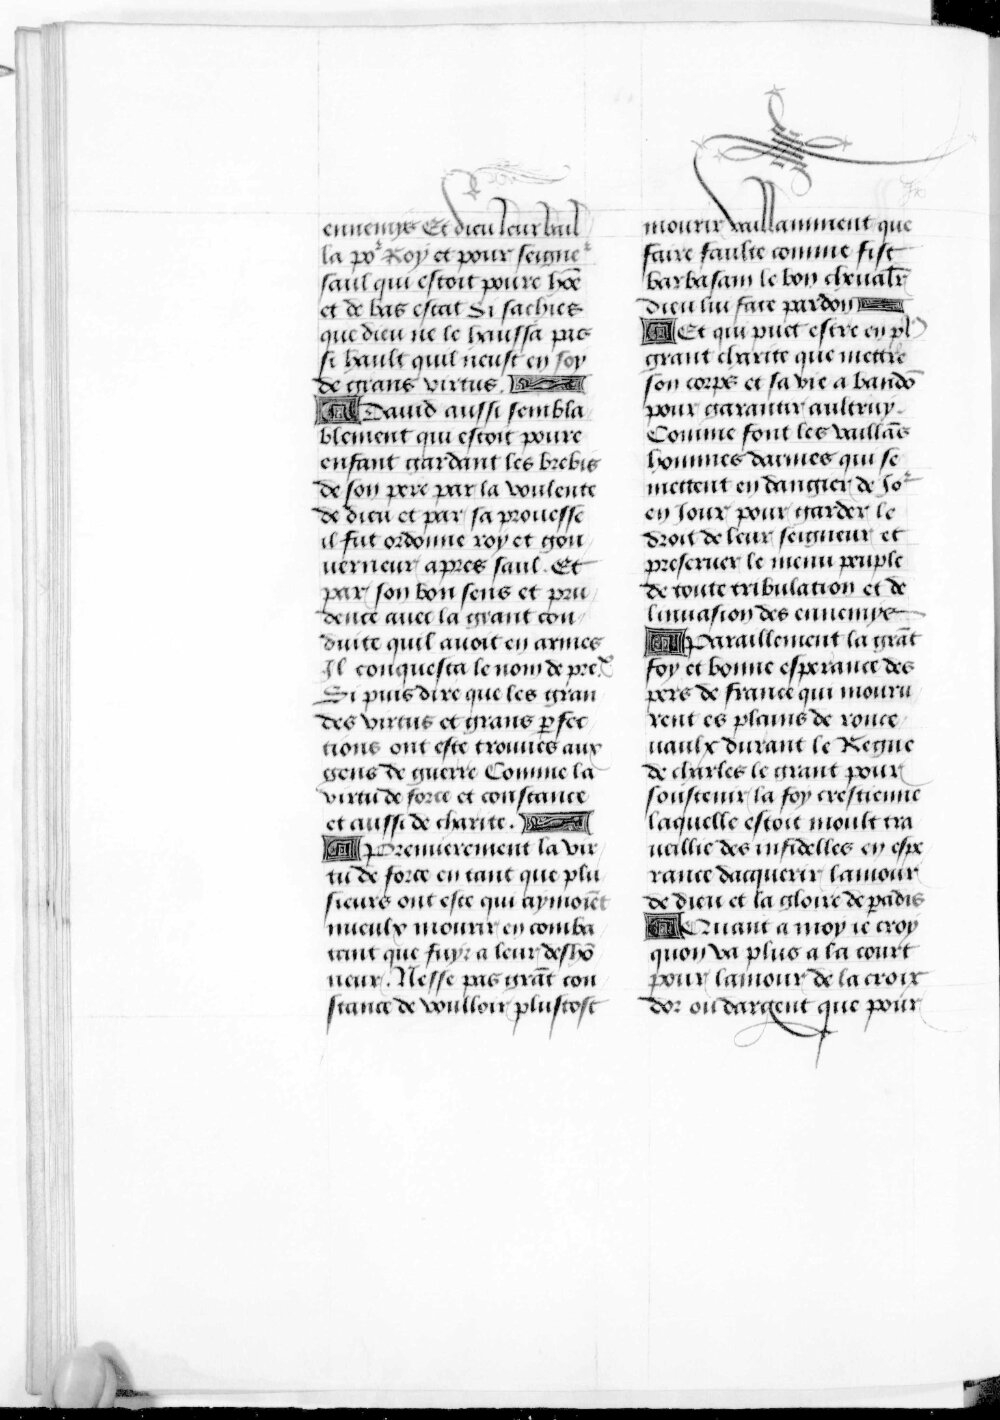 ennemys Et dieu leur bail
la por Roy et pour seigner
saul qui estoit poure hoē
et de bas estat Si sachies
que dieu ne le haussa pas
si hault quil neust en soy
de grans virtus.
Dauid aussi sembla
blement qui estoit poure
enfant gardant les brebis
de son pere par la voulente
de dieu et par sa prouesse
il fut ordonne roy et gou
uerneur apres saul. Et
par son bon sens et pru
dence auec la grant con
duite quil auoit en armes
Il conquesta le nom de preu
Si puis dire que les gran
des virtus et grans ꝑfec
tions ont este trouues aux
gens de guerre Comme la
virtu de force et constance
et aussi de charite.
Premierement la vir
tu de force en tant que plu
sieurs ont este qui aymoiēt
mieulx mourir en comba
tant que fuyr a leur deshō
neur. Nesse pas grāt con
stance de voulloir plustost
mourir vaillamment que
faire faulte comme fist
barbasam le bon cheualr̄
dieu lui face pardon
Et qui puet estre en pl9
grant charite que mettre
son corps et sa vie a bandō
pour garantir aultruy.
Comme font les vaillās
hommes darmes qui se
mettent en dangier de Jor
en Jour pour garder le
droit de leur seigneur et
preseruer le menu peuple
de toute tribulation et de
linuasion des ennemys
Paraillement la grāt
foy et bonne esperance des
pers de france qui mouru
rent es plains de ronce
uaulx durant le Regne
de charles le grant pour
soustenir la foy crestienne
laquelle estoit moult tra
ueillie des infidelles en espe
rance dacquerir lamour
de dieu et la gloire de ꝑadis
Quant a moy ie croy
quon va plus a la court
pour lamour de la croix
dor ou dargent que pour